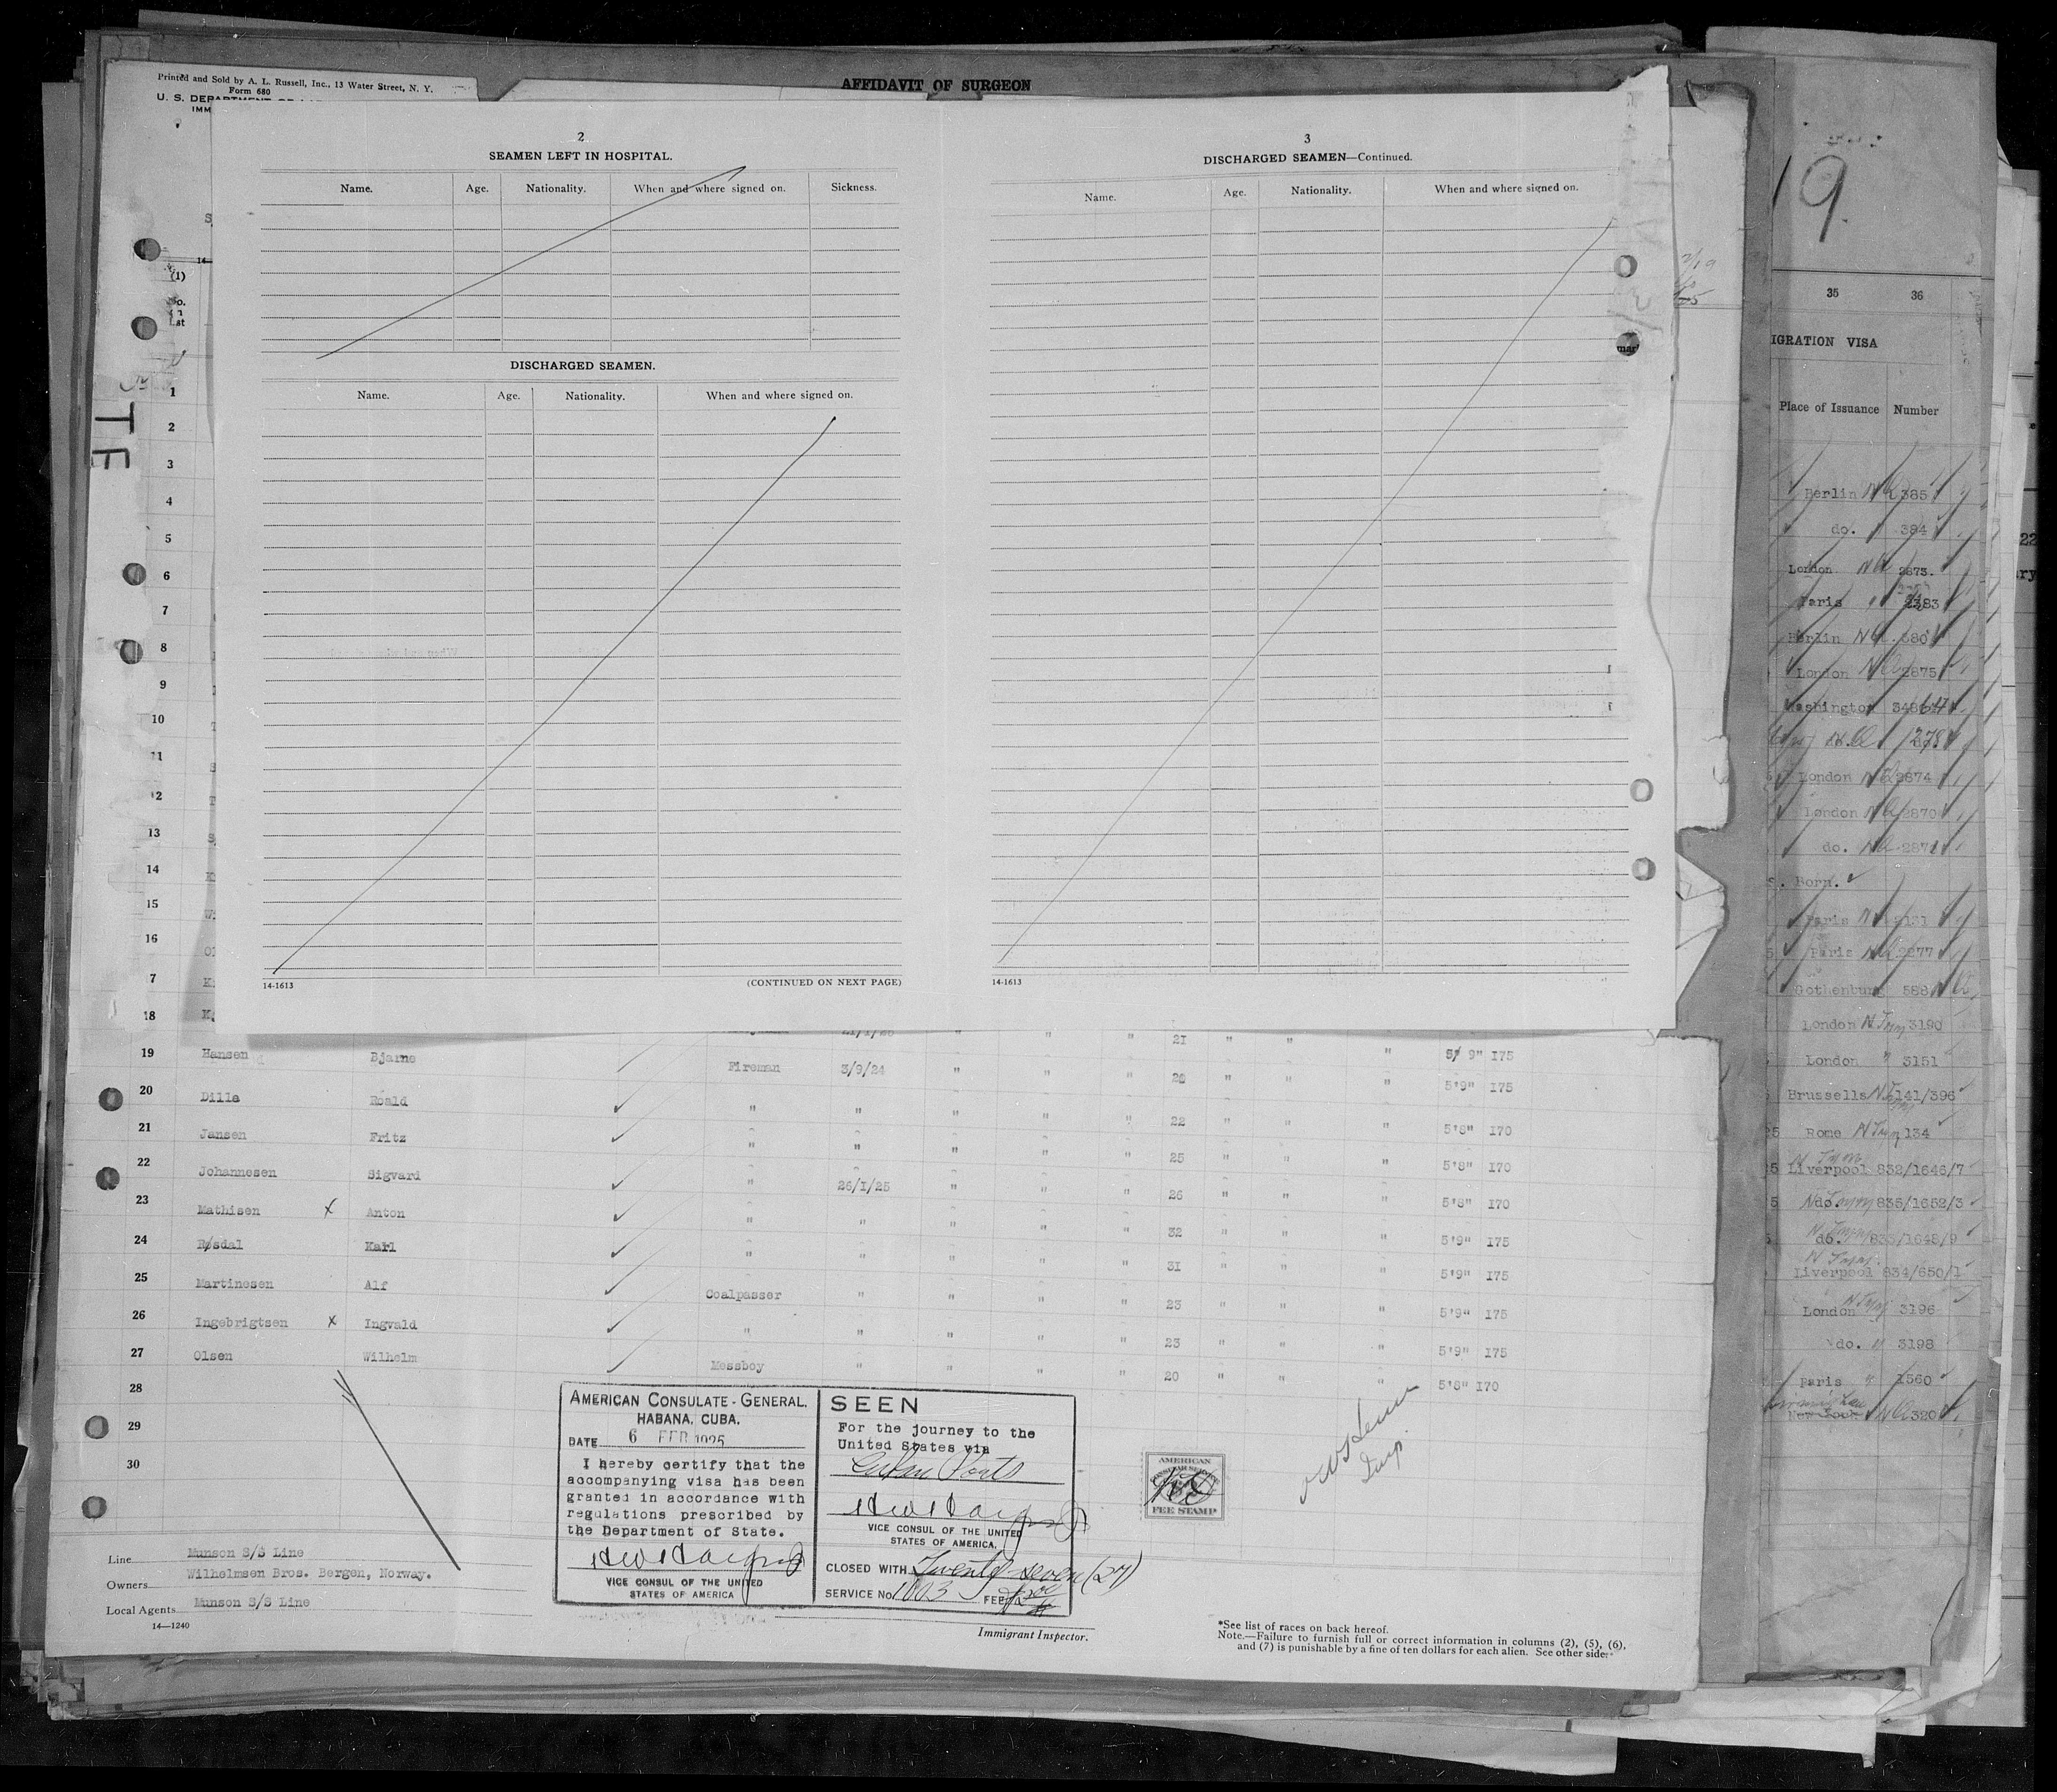 Printed and Sold by A. L. Russell, Inc., 13 Water Street, N. Y.
Form 680
U. S. DEPARTMENT
IMM
AFFIDAVIT OF SURGEON
2
SEAMEN LEFT IN HOSPITAL.
Name. Age. Nationality. When and where signed on. Sickness.
DISCHARGED SEAMEN.
Name. Age. Nationality. When and where signed on.
14-1613 (CONTINUED ON NEXT PAGE)
3
DISCHARGED SEAMEN—Continued.
Name. Age. Nationality. When and where signed on.
14-1613
(1)
1
2
3
4
5
6
7
8
9
10
11
12
13
14
15
16
7
18 21 " " "
19 Hansen Bjarne Fireman 3/9/24 " " " 20 " " " 5'9" 175
20 Dille Roald " " " " " 22 " " " 5'8" 170
21 Jansen Fritz " " " " " 25 " " " 5'8" 170
22 Johannesen Sigvard " 26/1/25 " " " 26 " " " 5'8" 170
23 Mathisen x Anton " " " " " 32 " " " 5'9" 175
24 Røsdal Karl " " " " " 31 " " " 5'9" 175
25 Martinesen Alf Coalpasser " " " " 23 " " " 5'9" 175
26 Ingebrigtsen x Ingvald " " " " " 23 " " " 5'9" 175
27 Olsen Wilhelm Messboy " " " " 20 " " " 5'8" 170
28
29
30
Line Munson S/S Line
Owners Wilhelmsen Bros. Bergen, Norway.
Local Agents Munson S/S Line
14—1240
AMERICAN CONSULATE-GENERAL.
HABANA, CUBA.
DATE 6 FEB 1925
I hereby certify that the
accompanying visa has been
granted in accordance with
regulations prescribed by
the Department of State.
VICE CONSUL OF THE UNITED
STATES OF AMERICA
SEEN
For the journey to the
United States via
Cuban Ports
VICE CONSUL OF THE UNITED
STATES OF AMERICA.
CLOSED WITH Twenty-seven (27)
SERVICE No. 1003 FEE
AMERICAN
CONSULAR SERVICE
FEE STAMP
Immigrant Inspector.
*See list of races on back hereof.
Note.—Failure to furnish full or correct information in columns (2), (5), (6),
and (7) is punishable by a fine of ten dollars for each alien. See other side.
19.
35 36
IGRATION VISA
Place of Issuance Number
Berlin 385
do. 384
London 2873.
Paris 2383
Berlin 380
London 2875
Washington
London 2874
London 2870
do. 2871
Born.
Paris 2131
Paris 2277
Gothenburg 588
London 3190
London " 3151
Brussells 141/396
Rome 134
Liverpool 832/1646/7
do. 835/1652/3
do. 835/1648/9
Liverpool 834/650/1
London 3196
do. " 3198
Paris " 1560
New York 320